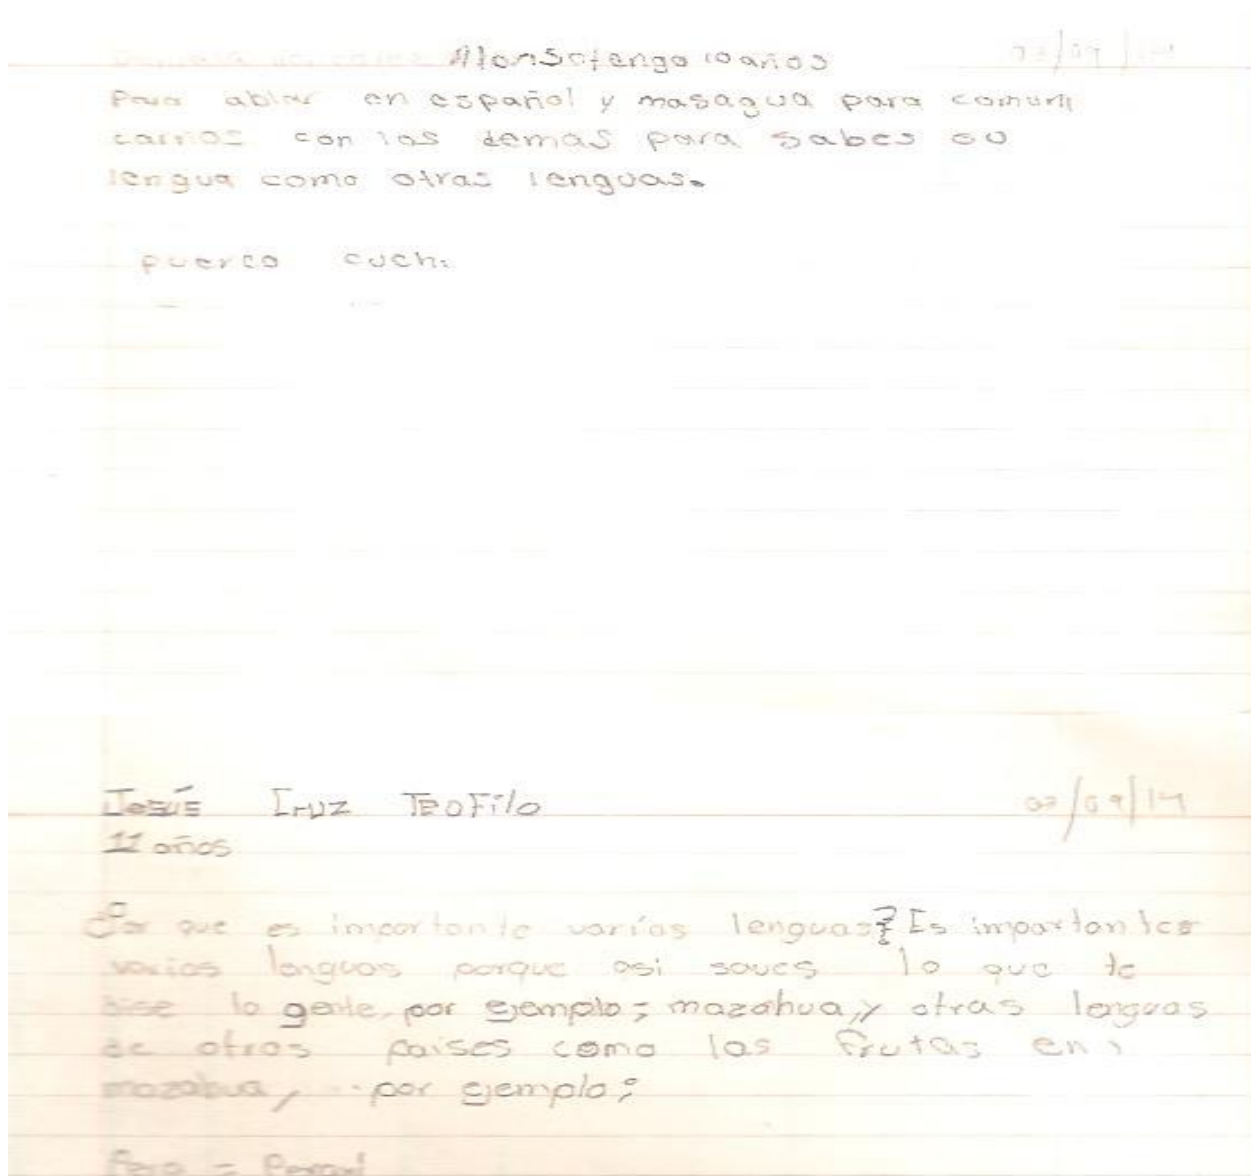 Alonso tengo 10 años 03/09/14
Para ablar en español y masagua para comuni
carnos con las demas para sabes su
lengua como otras lenguas.
puerco cuchi
Jesús Cruz TeoFilo 03/09/14
11 años
¿Por que es importante varías lenguas? Es importantes
varias lenguas porque asi saves lo que te
dise la gente, por ejemplo; mazahua, y otras lenguas
de otros paises como las frutas en
mazahua, por ejemplo;
Pera =